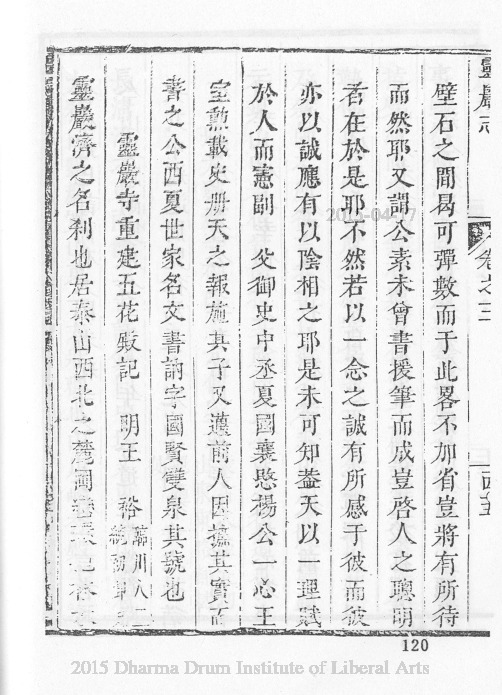 靈巖志
卷之三
四五
壁石之間曷可彈數而于此畧不加省豈將有所待
而然耶又謂公素未曾書援筆而成豈啓人之聰明
者在於是耶不然若以一念之誠有所感于彼而彼
亦以誠應有以陰相之耶是未可知葢天以一理賦
於人而憲副 父御史中丞夏國襄愍楊公一心王
室勲載史册天之報施其子又邁前人因摭其實而
書之公西夏世家名文書訥字國賢雙泉其號也
靈巖寺重建五花殿記 明王裕
靈巖濟之名刹也居泰山西北之麓
120
2015 Dharma Drum Institute of Liberal Arts